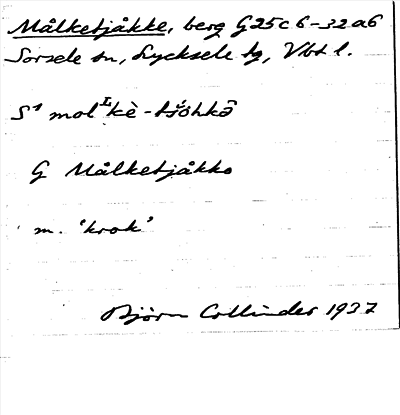 Målketjåkke, berg G25c6-32a6
Sorsele sn, Lycksele lg, Vbt l.
S¹ molᴸkè-tšǒhkȏ
G Målketjåkko
m. 'krok'
Björn Collinder 1937